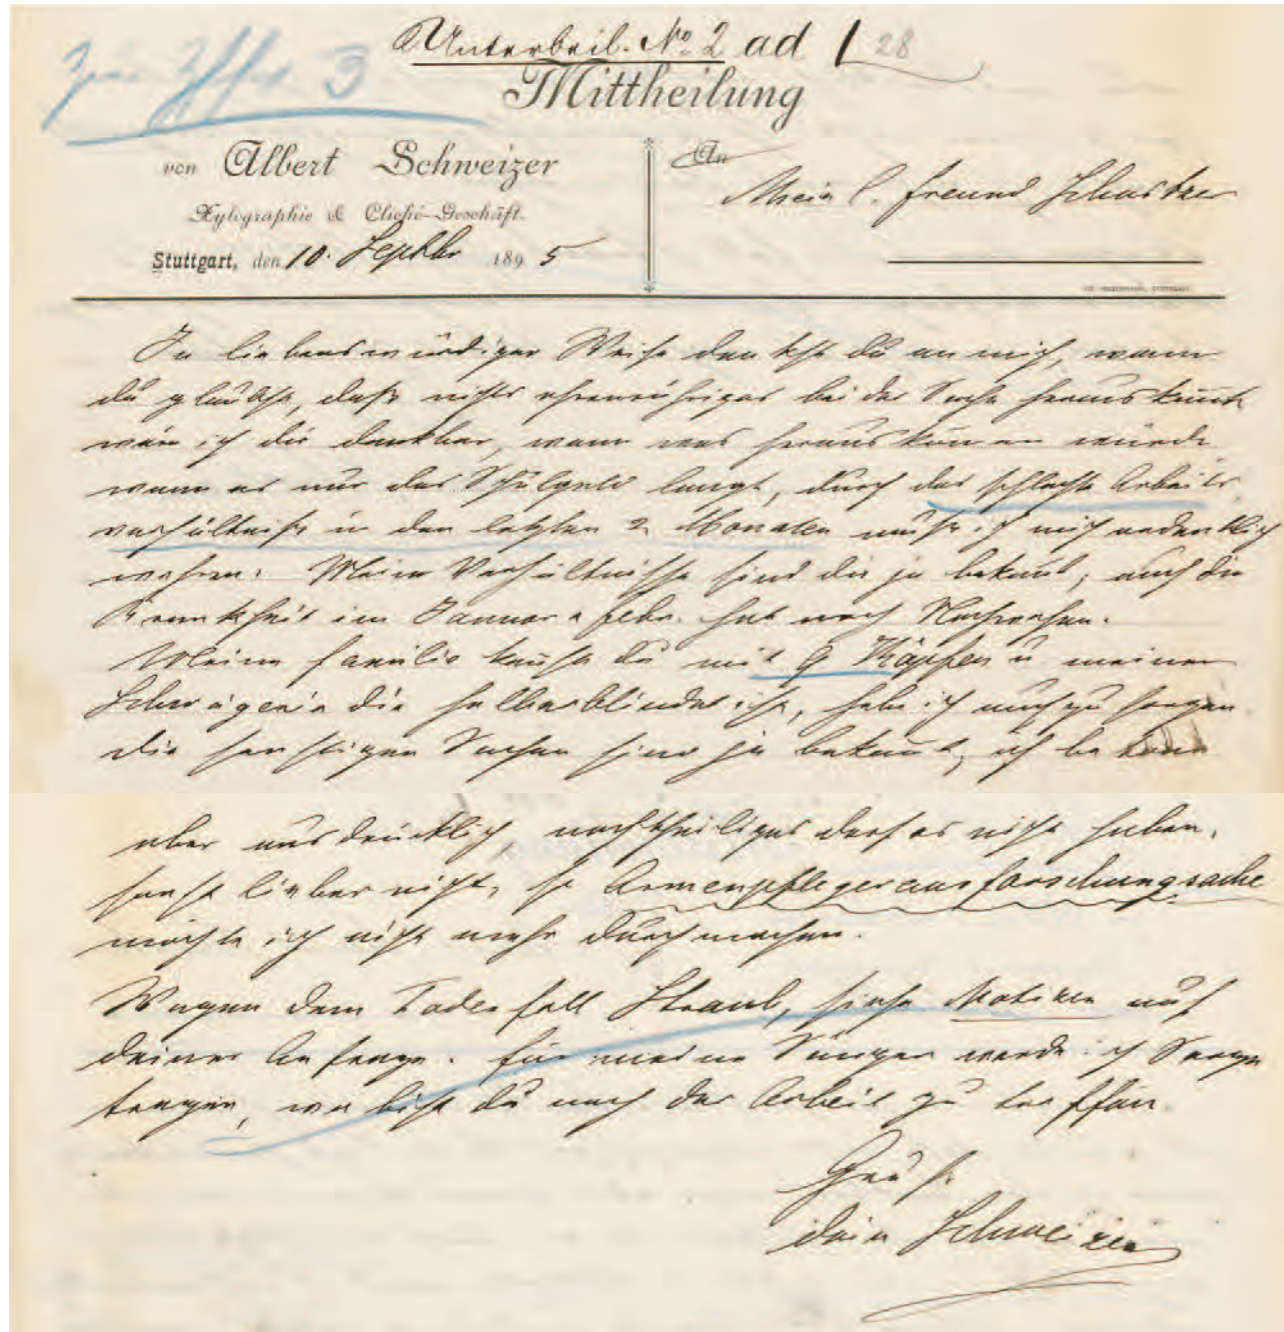 Unterbeil. No 2 ad 1 28
Zur Ziffer 3
Mittheilung
von Albert Schweizer
Xylographie & Cliché-Geschäft.
Stuttgart, den 10. Septbr 1895
An
Mein l. Freund Schuster
In liebenswürdiger Weise denkst du an mich, wenn
du glaubst, daß nichts ehrenrühriges bei der Sache herauskommt
wär ich dir dankbar, wenn was herauskommen würde
wenn es nur das Schulgeld langt, durch das schlechte Arbeits
verhältniß in den letzten 2 Monaten muß ich mich ordentlich
wehren. Meine Verhältnisse sind dir ja bekannt, auch die
Krankheit im Januar & Febr. hat noch Nachwehen.
Meine Familie kennst du mit 9 Köpfen u meiner
Schwägerin die halberblindet ist, habe ich auch zu sorgen.
die sonstigen Sachen sind ja bekannt, ich
aber ausdrücklich, nachtheiliges darf es nicht haben,
sonst lieber nicht, so Armenpflegerausforschungsache
möchte ich nicht mehr durchmachen.
Wegen dem Todesfall Straub, siehe Notizen auf
deiner Anfrage. Für meine Sänger werde ich Sorge
tragen, wo bist du nach der Arbeit zu treffen.
Gruß
dein Schweizer